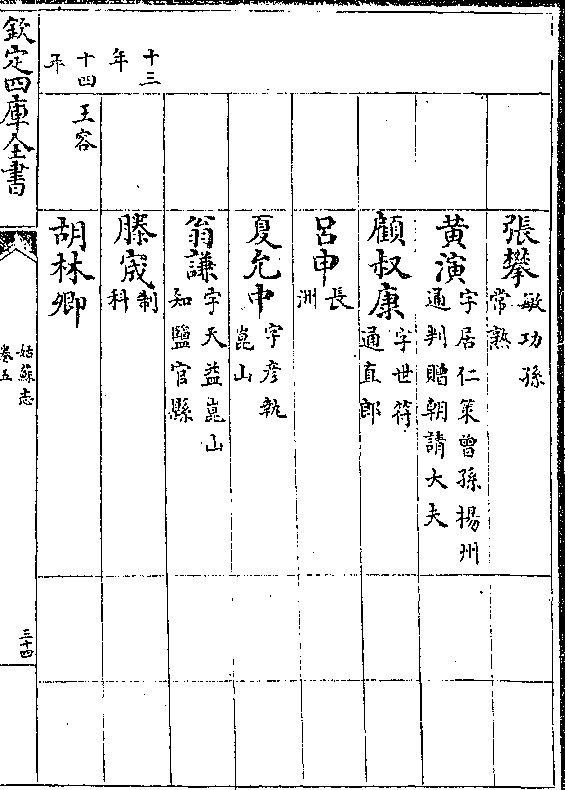 張攀敏功孫常熟
黄演字居仁策曾孫揚州通判贈朝請大夫
顧叔康字世符通直郎
呂申長洲
夏允中字彦執崑山
翁謙字天益崑山知鹽官縣
十三年
滕宬制科
十四年
王容
胡林卿
欽定四庫全書
姑蘇志
卷五
三十四